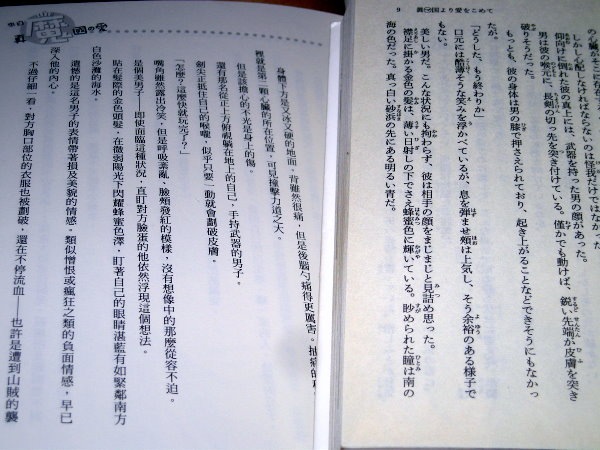 9 眞㋮国より愛をこめて
の心臓がそこに
しかし心配しなければならないのは怪我だけではな
仰向けに倒れた彼の真上には、武器を持った男の顔があった。
男は彼の喉元に、長剣の切っ先を突き付けている。僅かでも動けば、鋭い先端が皮膚を突き
破りそうだった。
もっとも、彼の身体は男の膝で押さえられており、起き上がることなどできそうにもなかっ
たが。
「どうした、もう終わりか」
口元には酷薄そうな笑みを浮かべているが、息を弾ませ頬は上気し、そう余裕のある様子で
もない。
美しい男だ。こんな状況にも拘わらず、彼は相手の顔をまじまじと見詰め思った。
襟足に掛かる金色の髪は、薄い日射しの下でさえ蜂蜜色に輝いている。眇められた瞳は南の
海の色だった。真っ白い砂浜の先にある明るい青だ。
國の愛
身體下方是又冰又硬的地面，背雖然很痛，但是後腦勺痛得更厲害。
裡就是第二顆心臟的所在位置，可見撞擊力道之大。
但是該擔心的不光是身上的傷。
還有那名從正上方俯視躺在地上的自己，手持武器的男子。
劍尖正抵住自己的喉嚨，似乎只要一動就會劃破皮膚。
「怎麼？這麼快就玩完了？」
嘴角雖然露出冷笑，但是呼吸紊亂、臉頰發紅的模樣，沒有想像中的那麼從容不迫。
是個美男子——即使面臨這種狀況，直盯對方臉蛋的他依然浮現這個想法。
貼在髮際的金色頭髮，在微弱陽光下閃耀蜂蜜色澤，盯著自己的眼睛湛藍有如緊鄰南方
白色沙灘的海水。
遺憾的是這名男子的表情帶著損及美貌的情感。類似憎恨或瘋狂之類的負面情感，早已
深入他的內心。
不過仔細一看，對方胸口部位的衣服也被劃破，還在不停流血——也許是遭到山賊的襲